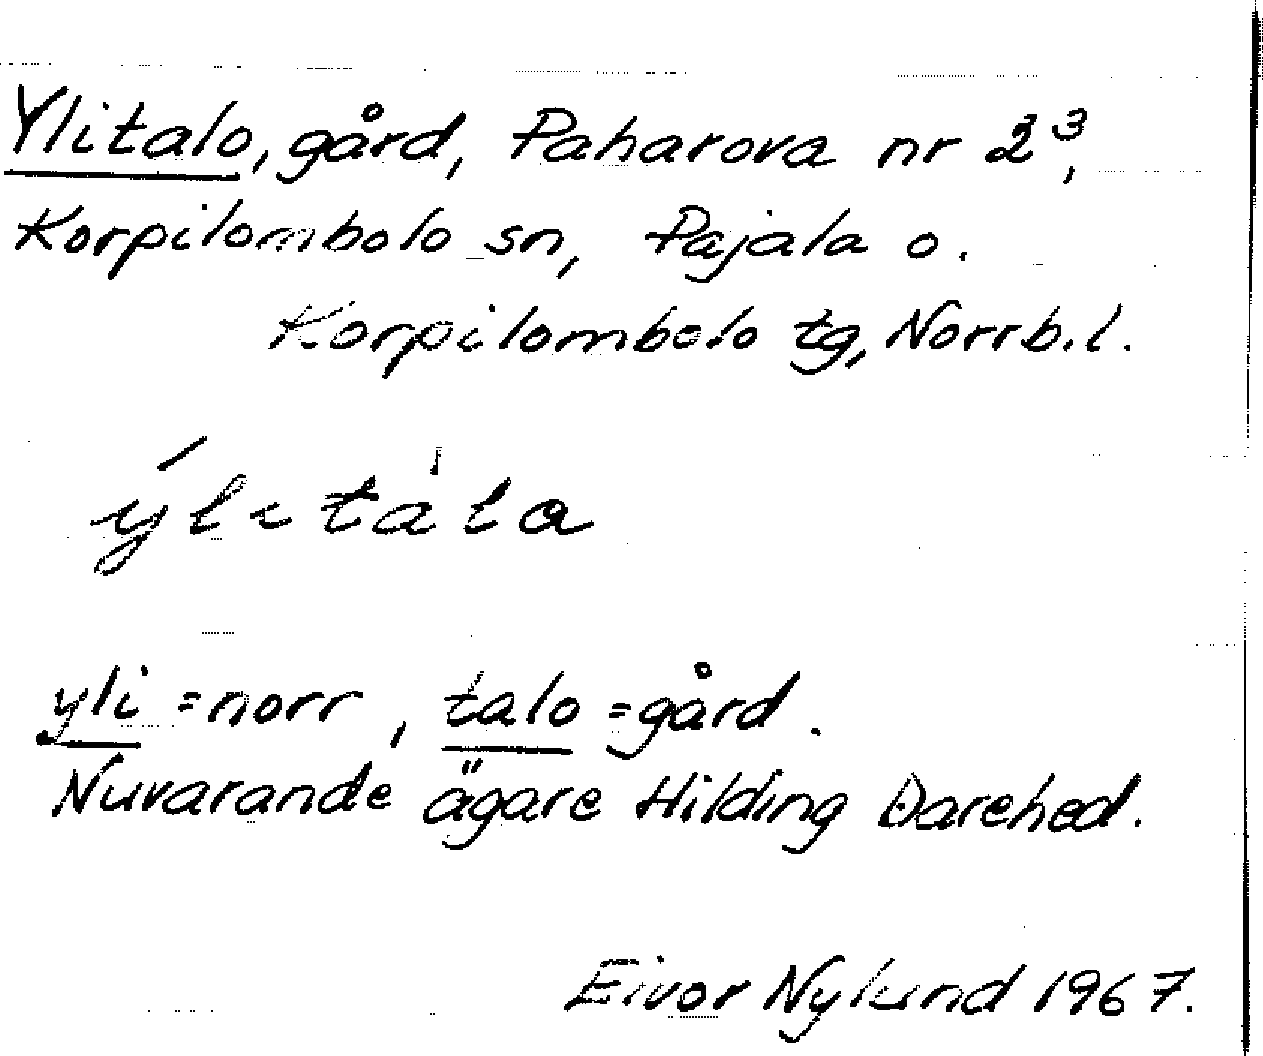 Ylitalo, gård, Paharova nr 2³,
Korpilombolo sn, Pajala o.
Korpilombolo tg, Norrb.l.
yli =norr, talo =gård.
Nuvarande ägare Hilding Darehed.
Eivor Nylund 1967.